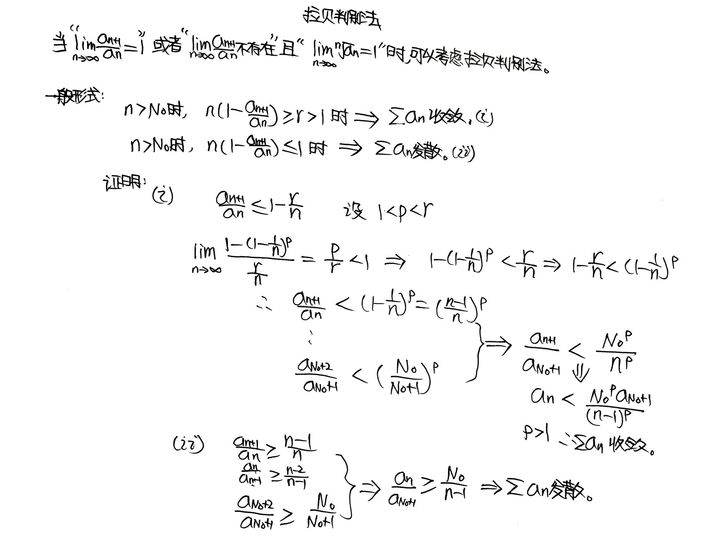 拉贝判别法
当“lim_{n→∞} a_{n+1}/a_n = 1”或者“lim_{n→∞} a_{n+1}/a_n 不存在”且“lim_{n→∞} ⁿ√a_n = 1”时,可以考虑拉贝判别法。
一般形式:
n>N₀时, n(1-a_{n+1}/a_n) ≥ r > 1 时 ⇒ Σa_n 收敛. (i)
n>N₀时, n(1-a_{n+1}/a_n) ≤ 1 时 ⇒ Σa_n 发散. (ii)
证明: (i) a_{n+1}/a_n ≤ 1-r/n 设 1<p<r
lim_{n→∞} (1-(1-1/n)^p)/(r/n) = p/r < 1 ⇒ 1-(1-1/n)^p < r/n ⇒ 1-r/n < (1-1/n)^p
∴ a_{n+1}/a_n < (1-1/n)^p = ((n-1)/n)^p
⋮
a_{N₀+2}/a_{N₀+1} < (N₀/(N₀+1))^p
⇒ a_{n+1}/a_{N₀+1} < N₀^p/n^p
⇓
a_n < N₀^p a_{N₀+1}/(n-1)^p
p>1 ∴Σa_n 收敛。
(ii) a_{n+1}/a_n ≥ (n-1)/n
a_n/a_{n-1} ≥ (n-2)/(n-1)
a_{N₀+2}/a_{N₀+1} ≥ N₀/(N₀+1)
⇒ a_n/a_{N₀+1} ≥ N₀/(n-1) ⇒ Σa_n发散。